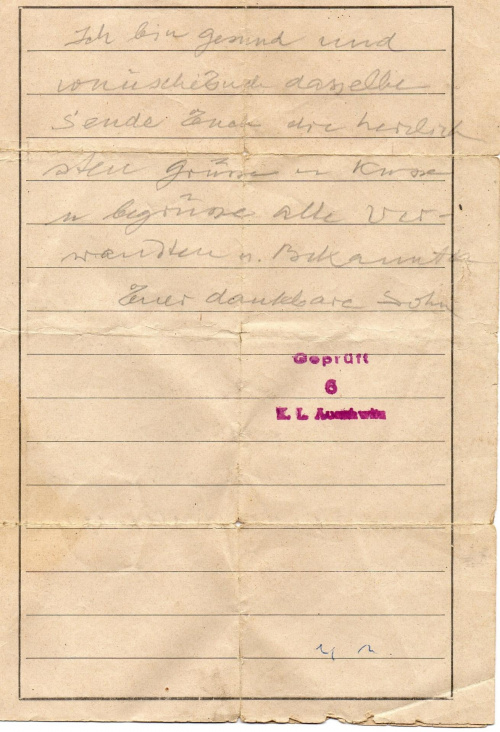 Ich bin gesund und
wünsche Euch dasselbe
sende Euch die herzlich
sten Grüsse u Küsse
u begrüsse alle Ver-
wandten u. Bekannten
Euer dankbare Sohn
Geprüft
6
K. L. Auschwitz